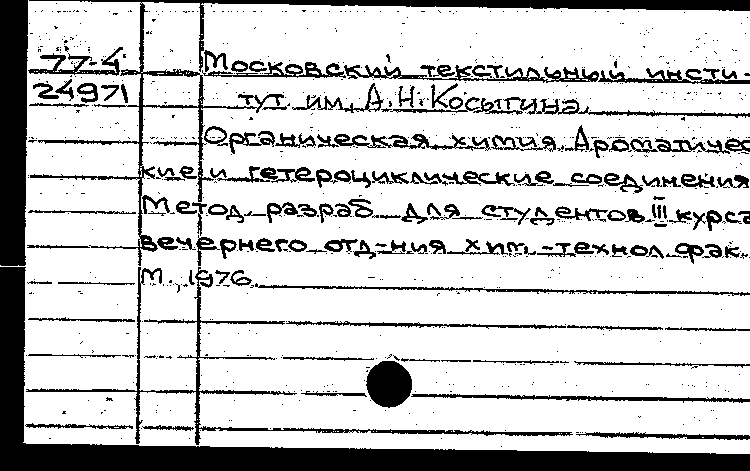 77-4 Московский текстильный инсти-
24971 тут им. А.Н.Косыгина.
Органическая химия. Ароматичес
кие и гетероциклические соединения
Метод. разраб. для студентов III курса
вечернего отд-ния хим.-технол. фак.
М., 1976.